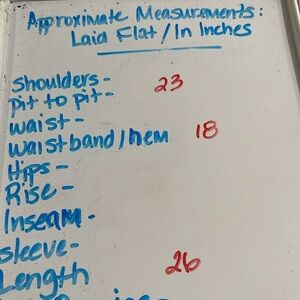 Approximate Measurements:
Laid Flat / In Inches
Shoulders - 23
Pit to pit -
Waist -
Waistband / hem 18
Hips -
Rise -
Inseam -
Sleeve -
Length 26